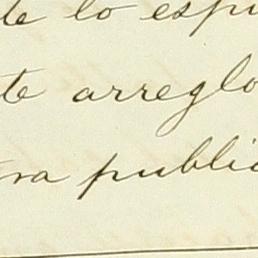 te lo espu
te arreglo
ra public